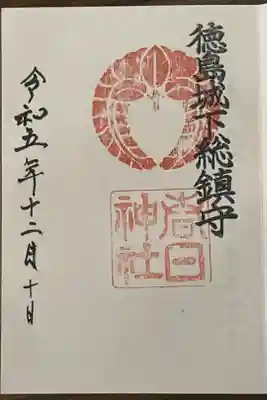 徳島城下総鎮守
春日
神社
令和五年十二月十日